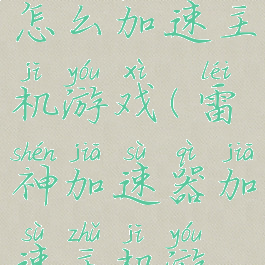 怎么加速主
jī yóu xì léi
机游戏(雷
shén jiā sù qì jiā
神加速器加
sù zhǔ jī yóu
速主机游